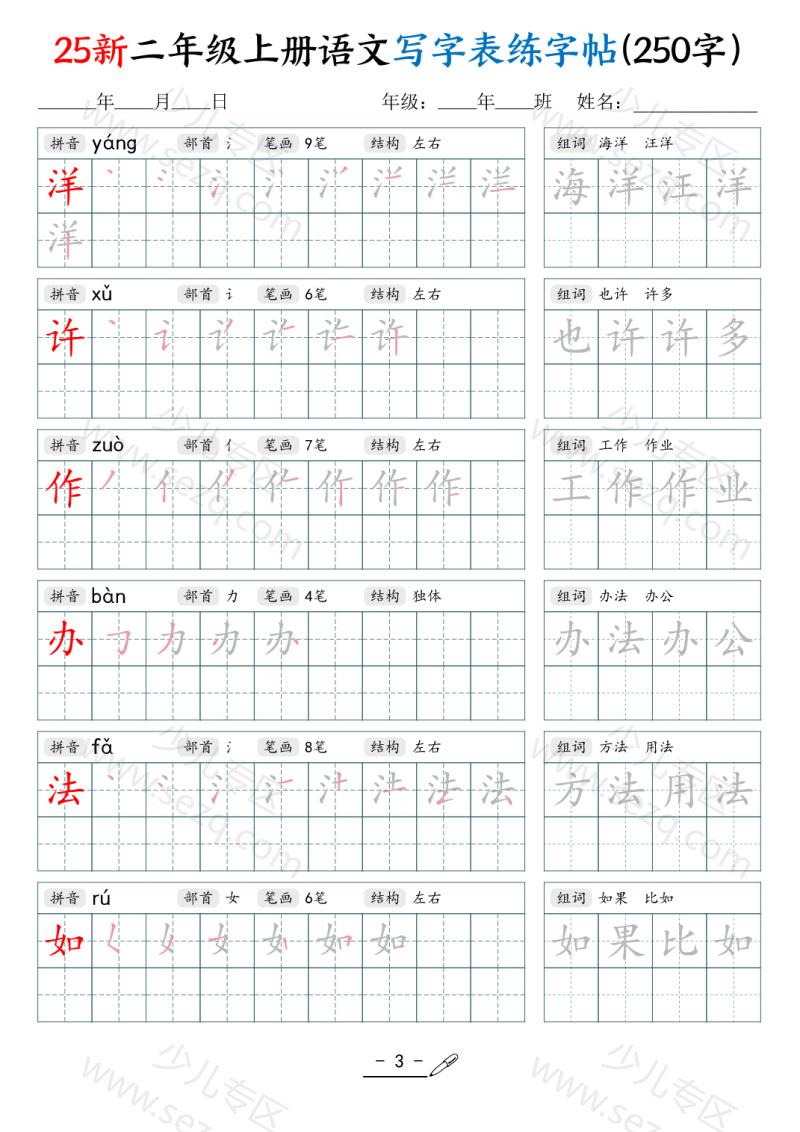 25新二年级上册语文写字表练字帖(250字)
______年____月____日 年级：____年____班 姓名：____________
拼音 yáng 部首 氵 笔画 9笔 结构 左右 组词 海洋 汪洋
洋 海洋汪洋
洋
拼音 xǔ 部首 讠 笔画 6笔 结构 左右 组词 也许 许多
许 也许许多
拼音 zuò 部首 亻 笔画 7笔 结构 左右 组词 工作 作业
作 工作作业
拼音 bàn 部首 力 笔画 4笔 结构 独体 组词 办法 办公
办 办法办公
拼音 fǎ 部首 氵 笔画 8笔 结构 左右 组词 方法 用法
法 方法用法
拼音 rú 部首 女 笔画 6笔 结构 左右 组词 如果 比如
如 如果比如
- 3 -
少儿专区
www.sezq.com